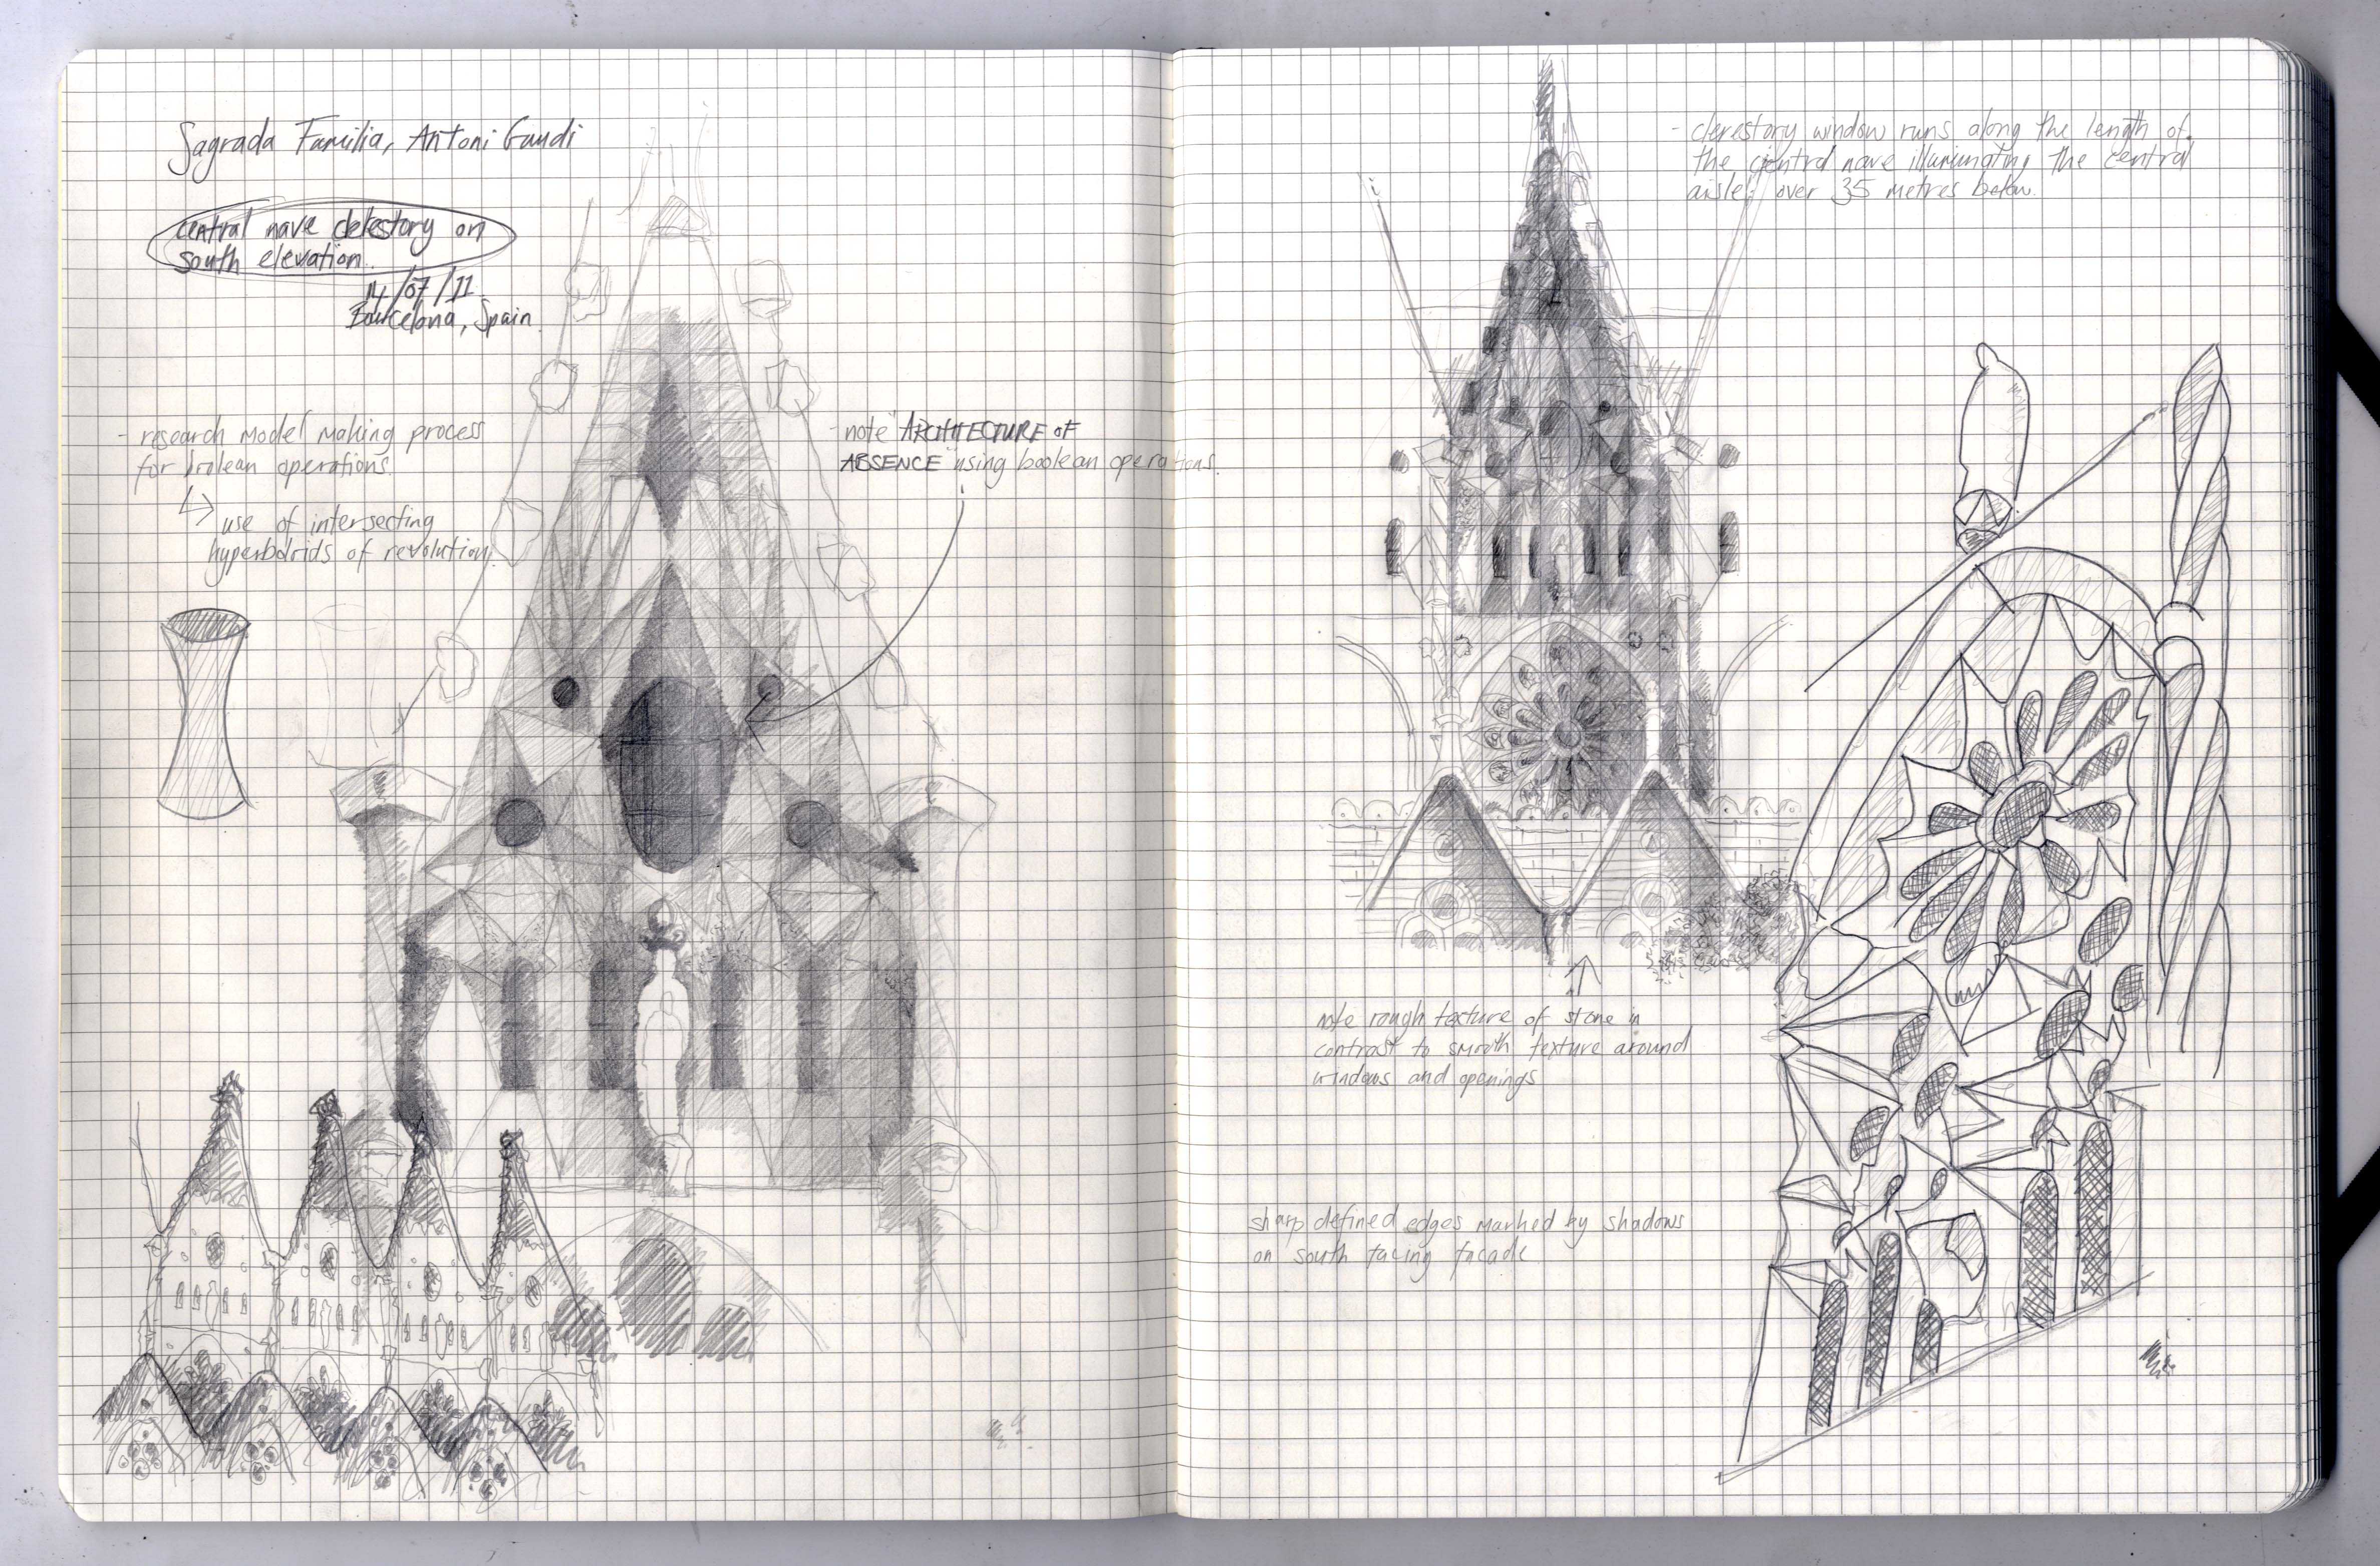 Sagrada Familia, Antoni Gaudi
central nave clerestory on
south elevation.
14/07/11
Barcelona, Spain
- research model making process
for boolean operations.
use of intersecting
hyperboloids of revolution.
- note "ARCHITECTURE OF
ABSENCE" using boolean operations.
- clerestory window runs along the length of
the central nave illuminating the central
aisle; over 35 metres below.
note rough texture of stone in
contrast to smooth texture around
windows and openings
sharp defined edges marked by shadows
on south facing facade